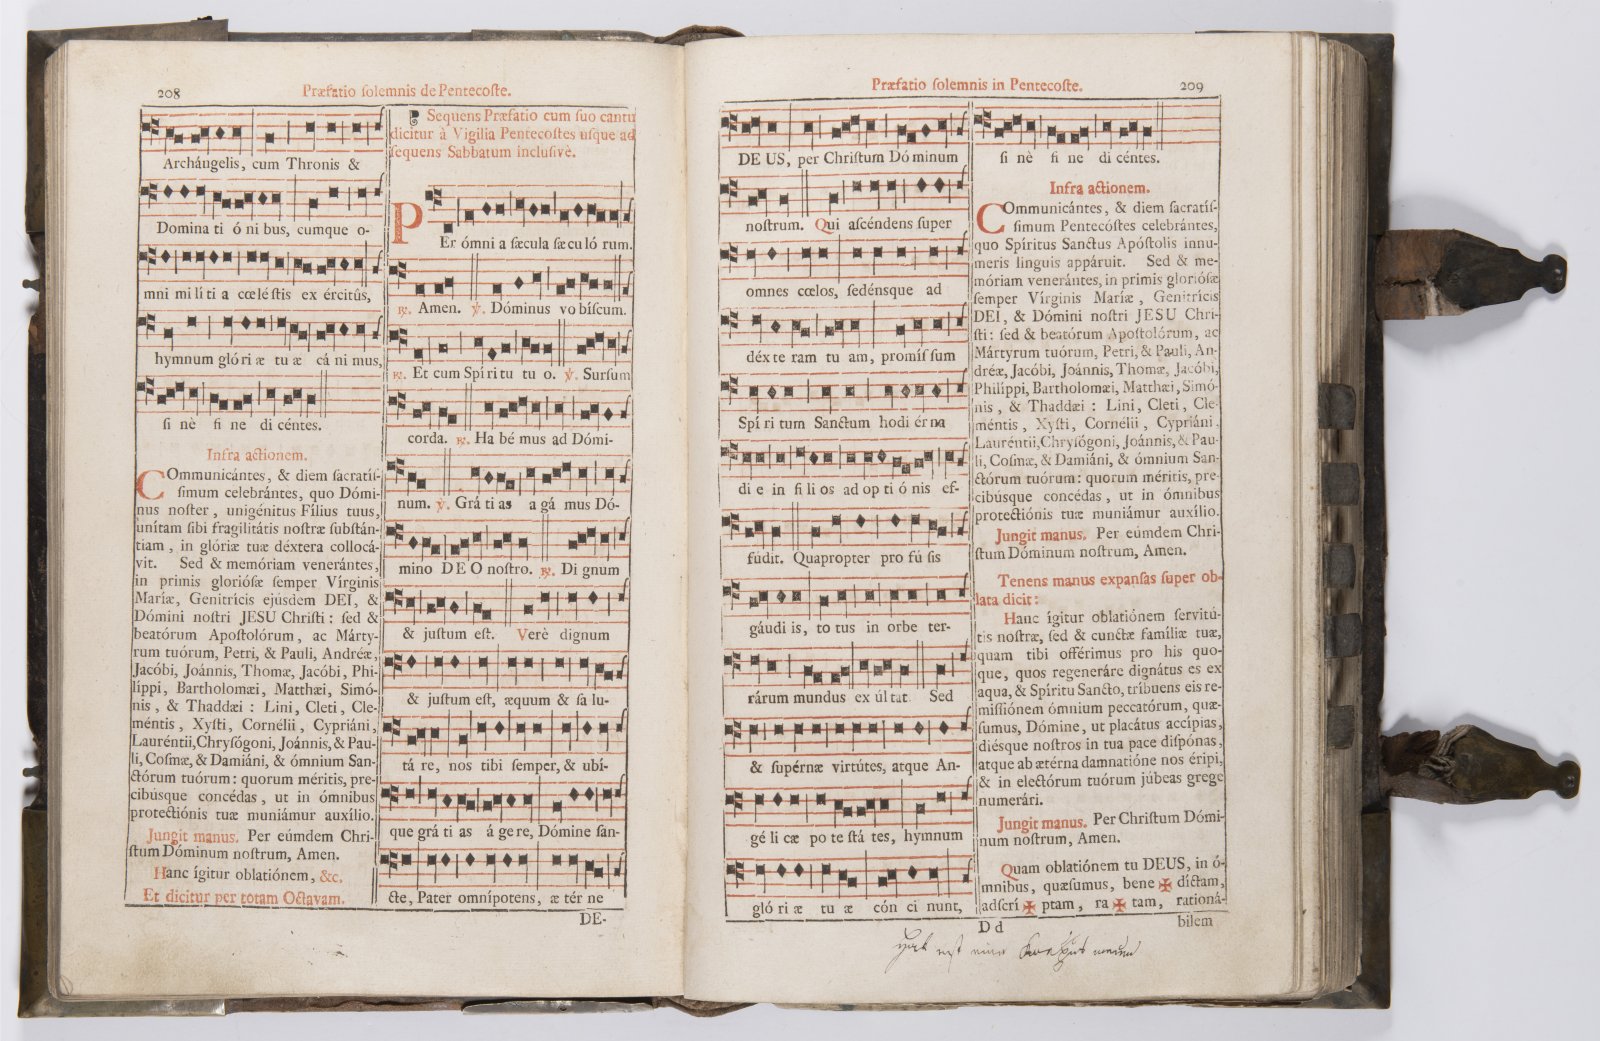 208
Præfatio ſolemnis de Pentecoſte.
Archángelis, cum Thronis &
Domina ti ó ni bus, cumque o-
mni mi lí ti a cœlé ſtis ex ércitûs,
hymnum gló ri æ tu æ cá ni mus,
ſi nè fi ne di céntes.
Infra actionem.
COmmunicántes, & diem ſacratíſ-
ſimum celebrántes, quo Dómi-
nus noſter, unigénitus Fílius tuus,
unítam ſibi fragilitátis noſtræ ſubſtán-
tiam, in glóriæ tuæ déxtera collocá-
vit. Sed & memóriam venerántes,
in primis glorióſæ ſemper Vírginis
Maríæ, Genitrícis ejúsdem DEI, &
Dómini noſtri JESU Chriſti: ſed &
beatórum Apoſtolórum, ac Márty-
rum tuórum, Petri, & Pauli, Andréæ,
Jacóbi, Joánnis, Thomæ, Jacóbi, Phi-
líppi, Bartholomæi, Matthæi, Simó-
nis, & Thaddæi: Lini, Cleti, Cle-
méntis, Xyſti, Cornélii, Cypriáni,
Lauréntii, Chryſógoni, Joánnis, & Pau-
li, Coſmæ, & Damiáni, & ómnium San-
ctórum tuórum: quorum méritis, pre-
cibúsque concédas, ut in ómnibus
protectiónis tuæ muniámur auxílio.
Jungit manus. Per eúmdem Chri-
ſtum Dóminum noſtrum, Amen.
Hanc ígitur oblatiónem, &c.
Et dicitur per totam Octavam.
Sequens Præfatio cum ſuo cantu
dicitur à Vigilia Pentecoſtes uſque ad
ſequens Sabbatum incluſivè.
PEr ómni a ſæcula ſæ cu ló rum.
℟. Amen. ℣. Dóminus vo bíſcum.
℟. Et cum Spí ri tu tu o. ℣. Surſum
corda. ℟. Ha bé mus ad Dómi-
num. ℣. Grá ti as a gá mus Dó-
mino DEO noſtro. ℟. Di gnum
& juſtum eſt. Verè dignum
& juſtum eſt, æquum & ſa lu-
tá re, nos tibi ſemper, & ubí-
que grá ti as á ge re, Dómine ſan-
cte, Pater omnípotens, æ tér ne
DE-
Præfatio ſolemnis in Pentecoſte.
209
DE US, per Chriſtum Dó minum
noſtrum. Qui aſcéndens ſuper
omnes cœlos, ſedénsque ad
déxte ram tu am, promíſ ſum
Spí ri tum Sanctum hodi ér na
di e in fi li os ad op ti ó nis ef-
fúdit. Quapropter pro fú ſis
gáudi is, to tus in orbe ter-
rárum mundus ex úl tat. Sed
& ſupérnæ virtútes, atque An-
gé li cæ po te ſtá tes, hymnum
gló ri æ tu æ cón ci nunt,
ſi nè fi ne di céntes.
Infra actionem.
COmmunicántes, & diem ſacratíſ-
ſimum Pentecóſtes celebrántes,
quo Spíritus Sanctus Apóſtolis innu-
meris linguis appáruit. Sed & me-
móriam venerántes, in primis glorióſæ
ſemper Vírginis Maríæ, Genitrícis
DEI, & Dómini noſtri JESU Chri-
ſti: ſed & beatórum Apoſtolórum, ac
Mártyrum tuórum, Petri, & Pauli, An-
dréæ, Jacóbi, Joánnis, Thomæ, Jacóbi,
Philíppi, Bartholomæi, Matthæi, Simó-
nis, & Thaddæi: Lini, Cleti, Cle-
méntis, Xyſti, Cornélii, Cypriáni,
Lauréntii, Chryſógoni, Joánnis, & Pau-
li, Coſmæ, & Damiáni, & ómnium San-
ctórum tuórum: quorum méritis, pre-
cibúsque concédas, ut in ómnibus
protectiónis tuæ muniámur auxílio.
Jungit manus. Per eúmdem Chri-
ſtum Dóminum noſtrum, Amen.
Tenens manus expanſas ſuper ob-
lata dicit:
Hanc ígitur oblatiónem ſervitú-
tis noſtræ, ſed & cunctæ famíliæ tuæ,
quam tibi offérimus pro his quo-
que, quos regeneráre dignátus es ex
aqua, & Spíritu Sancto, tríbuens eis re-
miſſiónem ómnium peccatórum, quæ-
ſumus, Dómine, ut placátus accípias,
diésque noſtros in tua pace diſpónas,
atque ab ætérna damnatióne nos éripi,
& in electórum tuórum júbeas grege
numerári.
Jungit manus. Per Chriſtum Dómi-
num noſtrum, Amen.
Quam oblatiónem tu DEUS, in ó-
mnibus, quæſumus, bene ✠ díctam,
adſcrí ✠ ptam, ra ✠ tam, rationá-
D d
bilem